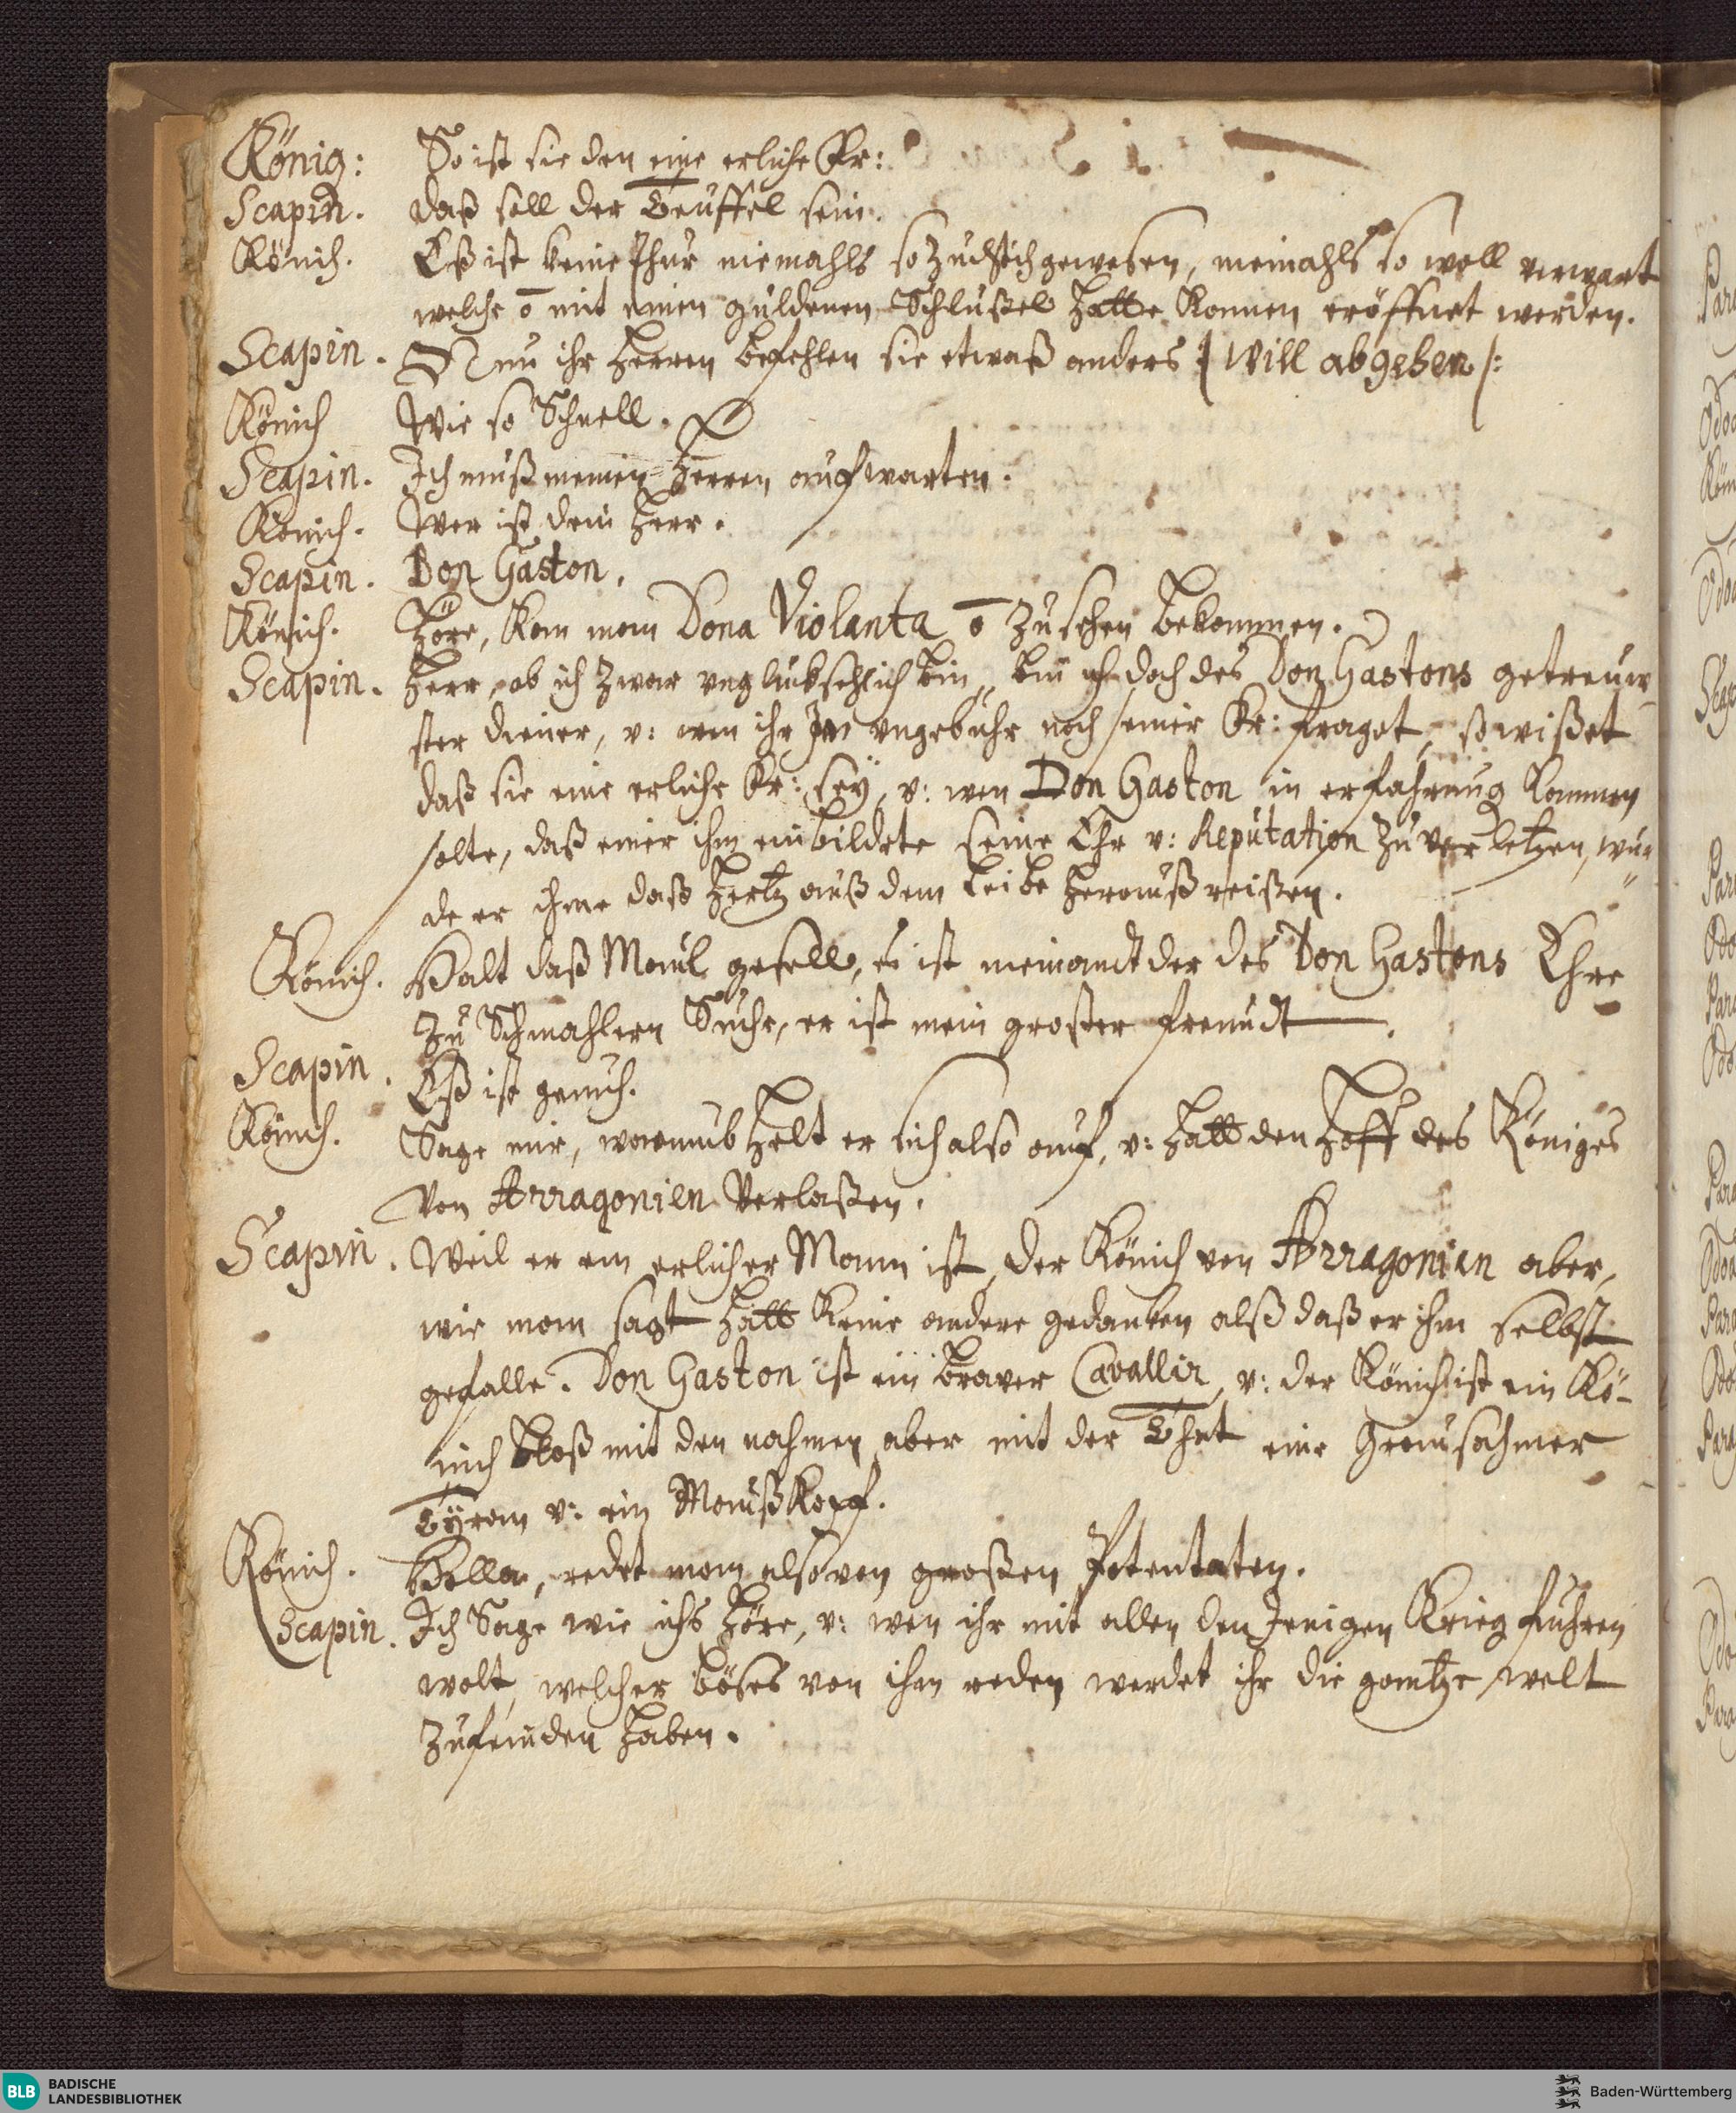 König: So ist sie den eine erliche Fr:
Scapin. daß soll der Teuffel sein.
Könich. Eß ist keine thur niemahls so zuchtich gewesen, niemahls so woll verwart
welche ō mit einen guldenen Schlußel hatte konnen eröffnet werden.
Scapin. Nu ihr Herren befehlen sie etwaß anders |: Will abgehen :|
Könich Wie so Schnell.
Scapin. Ich muß meinen Herren aufwarten.
Könich. Wer ist dein Herr.
Scapin. Don Gaston.
Könich. Höre, kan man Dona Violanta ō zusehen bekommen.
Scapin. Herr, ob ich zwar unglükselich bin, bin ich doch des Don Gastons getreuw-
ster diener, v: wen ihr zur ungebuhr nach seiner Fr: fraget, so wißet
daß sie eine erliche Fr: seÿ, v: wen Don Gaston in erfahrung kommen
solte, daß einer ihm einbildete seine Ehr v: Reputation zu verletzen, wur-
de er ihme daß Hertz auß dem leibe herauß reißen.
Könich. Halt daß Maul gesell, es ist niemandt der des Don Gastons Ehre
zu Schmahlern Suche, er ist mein großer freundt.
Scapin. Eß ist genuch.
Könich. Sage mir, warumb helt er sich also auf, v: hatt den Hoff des Königes
von Arragonien verlaßen.
Scapin. Weil er ein erlicher Mann ist, der Könich von Arragonien aber,
wie man sagt hatt keine andere gedanken alß daß er ihm selbst
gefalle. Don Gaston ist ein braver Cavallir, v: der Könich ist ein Kö-
nich bloß mit den nahmen aber mit der That eine Grausahmer
Tÿran v: ein Maußkopf.
Könich. Holla, redet man also von großen Potentaten.
Scapin. Ich Sage wie ichs höre, v: wen ihr mit allen den Jenigen Krieg fuhren
wolt, welcher böses von ihm reden werdet ihr die gantze welt
zufeinden haben.
BLB BADISCHE
LANDESBIBLIOTHEK
Baden-Württemberg